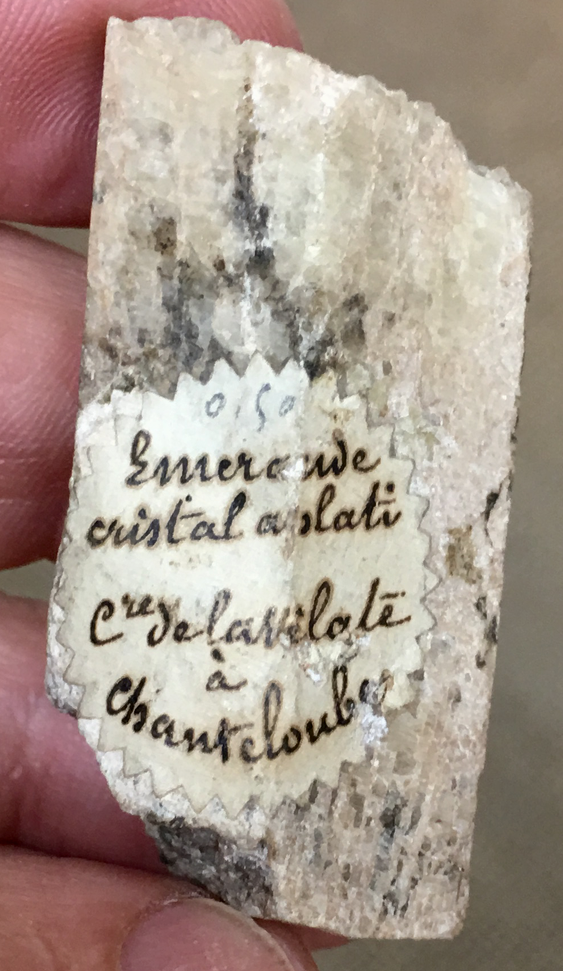 0.50
Emeraude
cristal aplati
Cre de la vilate
à
Chanteloube